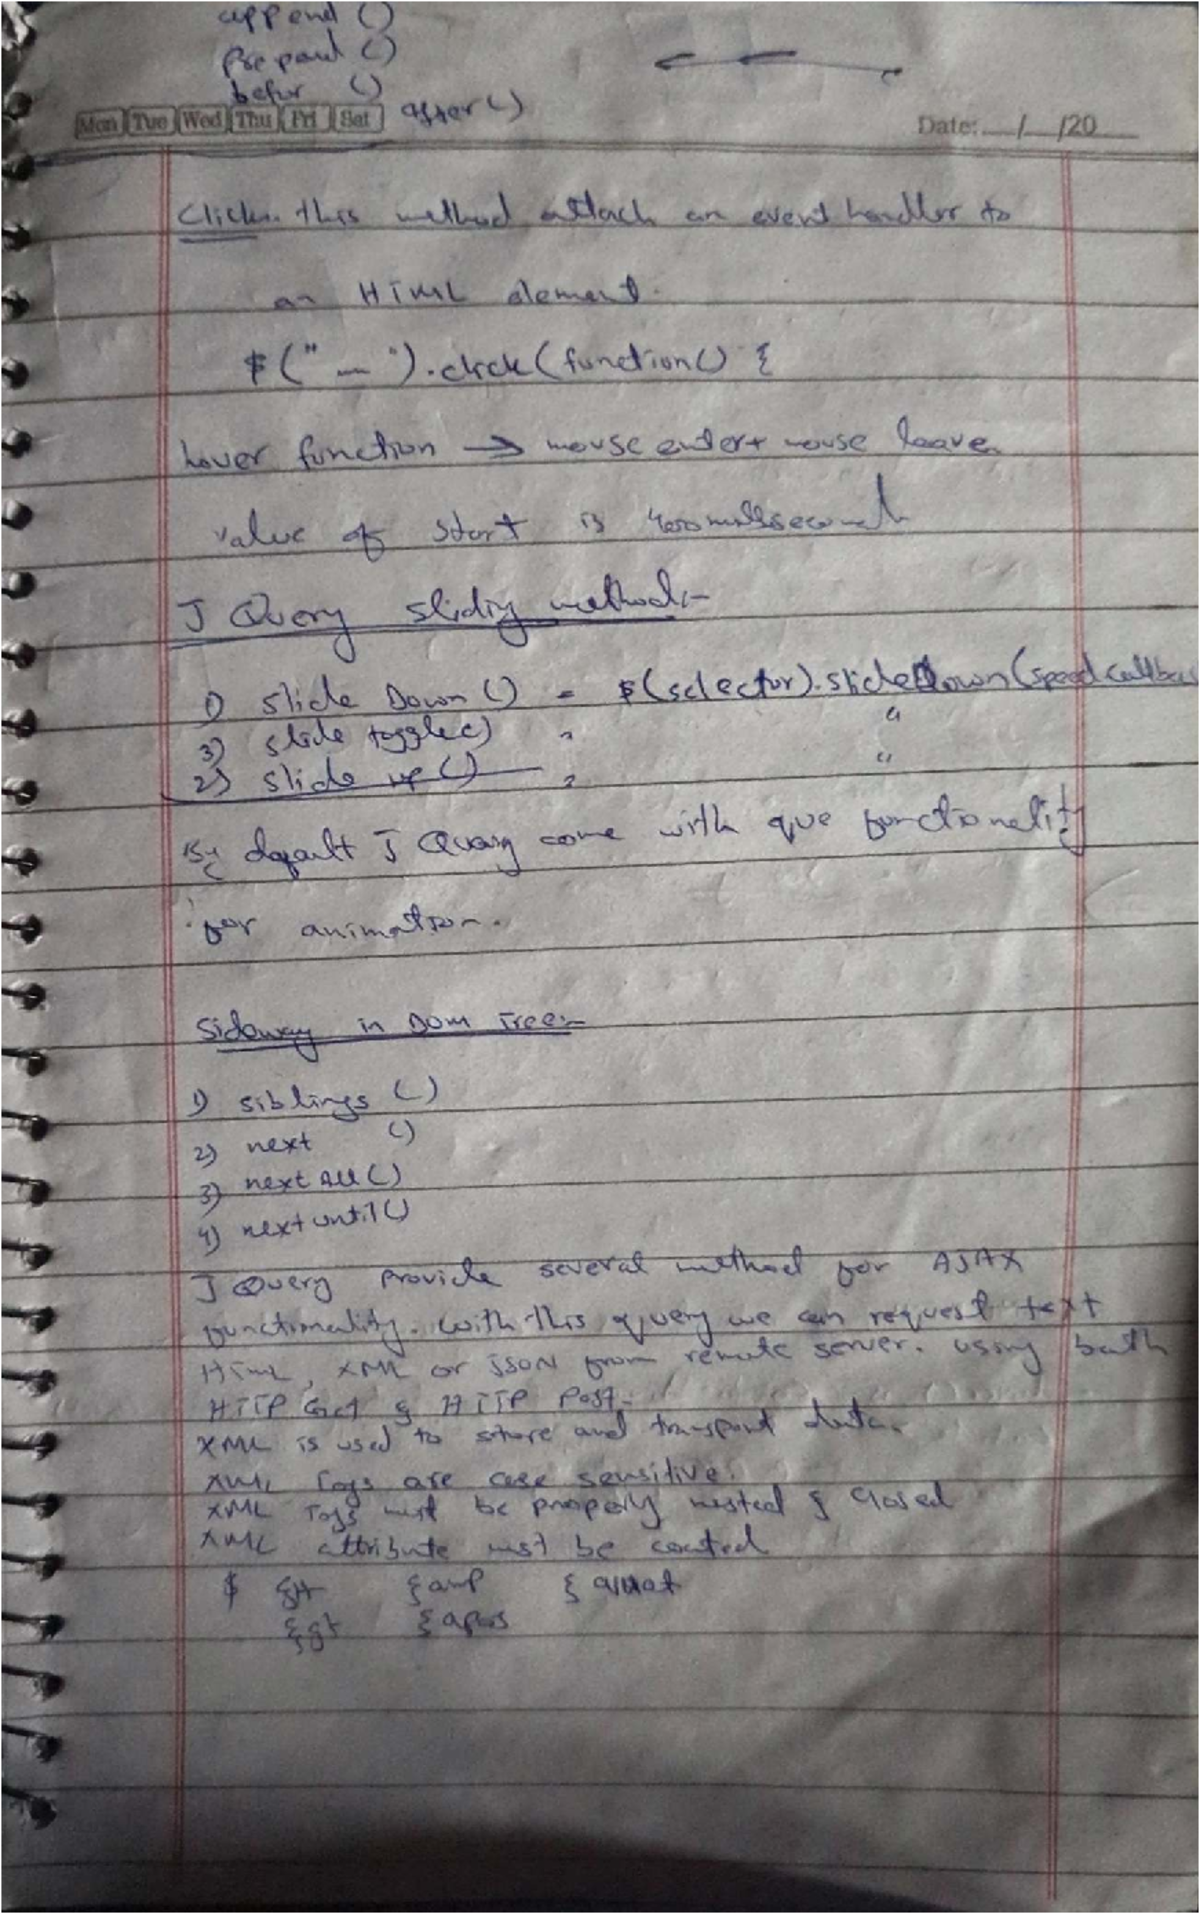 append ()
Prepand ()
befor ()
after ()
Mon Tue Wed Thu Fri Sat
Date: __/__/20__
Click:- this method attach an event handler to
an HTML element.
$("__").click(function() {
hover function → mouse enter + mouse leave
value of start is 400 millisecond
J Query sliding method:-
1) slide Down () = $(selector).slideDown(speed callbac
3) slide toggle() " "
2) slide up () " "
By default J Query come with que functionality
for animation.
Sideway in DOM Tree:-
1) siblings ()
2) next ()
3) next All ()
4) next until ()
J Query Provide several method for AJAX
functionality. With this query we can request text
HTML, XML or JSON from remote server. using both
HTTP Get & HTTP Post.
XML is used to store and transport data.
XML Tags are case sensitive.
XML Tags must be properly nested & Closed
XML attribute must be
$ &lt &amp
&gt &apos